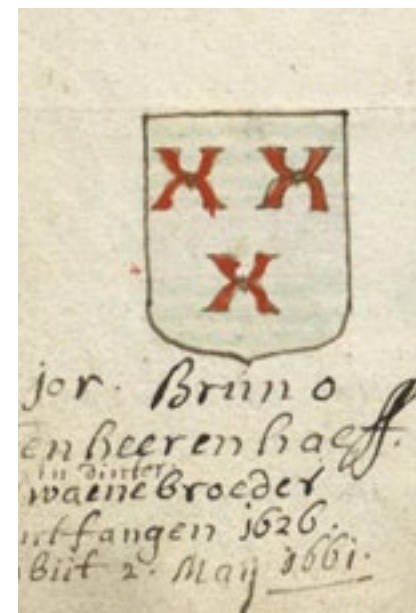 jor. Bruno
enheerenhaeff.
in dinter
waenebroeder
ntfangen 1626.
biit 2. Maij 1661.